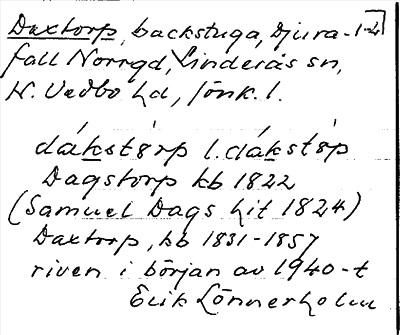 Daxtorp, backstuga, Djura- 1-2
fall Norrgd, Linderås sn,
N. Vedbo hd, Jönk. l.
dákstòrp l. dákstòp
Dagstorp kb 1822
(Samuel Dags hit 1824)
Daxtorp, hb 1831-1857
riven i början av 1940-t
Erik Lönnerholm